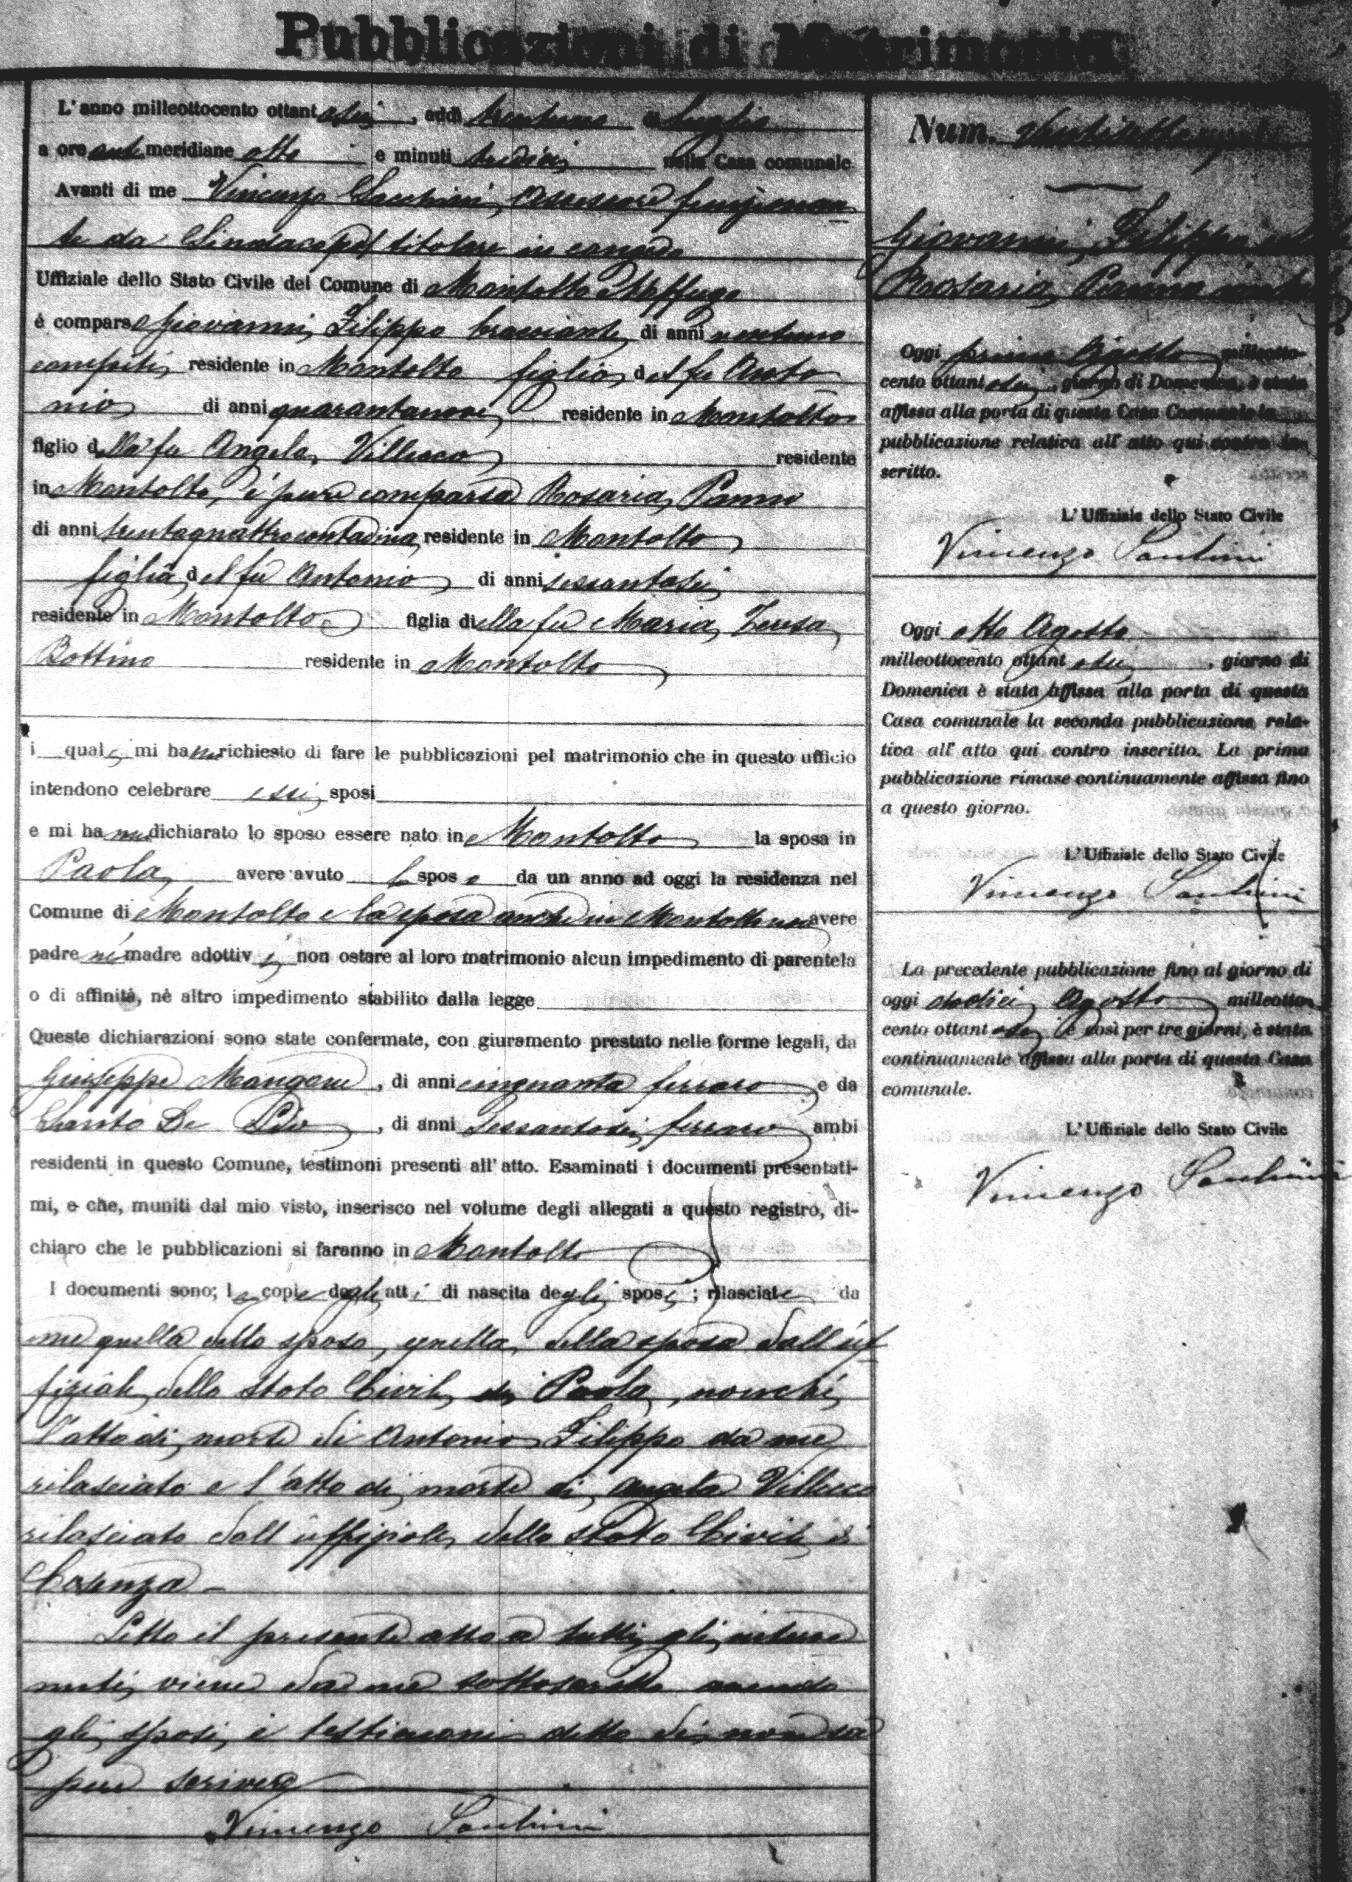 Pubblicazioni di Matrimonio
L'anno milleottocento ottantasei, addì trentuno di Luglio
a ore antemeridiane otto e minuti tredici nella Casa comunale
Avanti di me Vincenzo Santini, Assessore funzionan
te da Sindaco pel titolare in congedo
Uffiziale dello Stato Civile del Comune di Montalto Uffugo
è comparso Giovanni Filippo bracciante, di anni ventuno
compiti, residente in Montalto figlio del fu Anto
nio di anni quarantanove residente in Montalto
figlio della fu Angela Villecco residente
in Montalto, è pure comparsa Rosaria Panno
di anni trentaquattro contadina, residente in Montalto
figlia del fu Antonio di anni sessantasei
residente in Montalto figlia della fu Maria Teresa
Bottino residente in Montalto
i quali mi hanno richiesto di fare le pubblicazioni pel matrimonio che in questo ufficio
intendono celebrare essi sposi
e mi hanno dichiarato lo sposo essere nato in Montalto la sposa in
Paola, avere avuto lo sposo da un anno ad oggi la residenza nel
Comune di Montalto e la sposa anche in Montalto non avere
padre né madre adottivi, non ostare al loro matrimonio alcun impedimento di parentela
o di affinità, nè altro impedimento stabilito dalla legge
Queste dichiarazioni sono state confermate, con giuramento prestato nelle forme legali, da
Giuseppe Mangone, di anni cinquanta ferraro e da
Santo De Pio, di anni sessantasei, ferraro ambi
residenti in questo Comune, testimoni presenti all'atto. Esaminati i documenti presentati-
mi, e che, muniti dal mio visto, inserisco nel volume degli allegati a questo registro, di-
chiaro che le pubblicazioni si faranno in Montalto
I documenti sono; le copie degli atti di nascita degli sposi; rilasciate da
me quella dello sposo, quella della sposa dall'uf
fiziale dello stato Civile di Paola, nonchè
l'atto di morte di Antonio Filippo da me
rilasciato e l'atto di morte di Angela Villecco
rilasciato dall'uffiziale dello stato Civile di
Cosenza
Letto il presente atto a tutti gli interve
nuti, viene da me sottoscritto avendo
gli sposi e testimoni detto di non sa
pere scrivere
Vincenzo Santini
Num.
Giovanni Filippo
Rosaria Panno
Oggi primo Agosto milleotto-
cento ottantasei, giorno di Domenica, è stata
affissa alla porta di questa Casa Comunale la
pubblicazione relativa all'atto qui contro in-
scritto.
L'Uffiziale dello Stato Civile
Vincenzo Santini
Oggi otto Agosto
milleottocento ottantasei, giorno di
Domenica è stata affissa alla porta di questa
Casa comunale la seconda pubblicazione rela-
tiva all'atto qui contro inscritto. La prima
pubblicazione rimase continuamente affissa fino
a questo giorno.
L'Uffiziale dello Stato Civile
Vincenzo Santini
La precedente pubblicazione fino al giorno di
oggi dodici Agosto milleotto-
cento ottantasei, e così per tre giorni, è stata
continuamente affissa alla porta di questa Casa
comunale.
L'Uffiziale dello Stato Civile
Vincenzo Santini